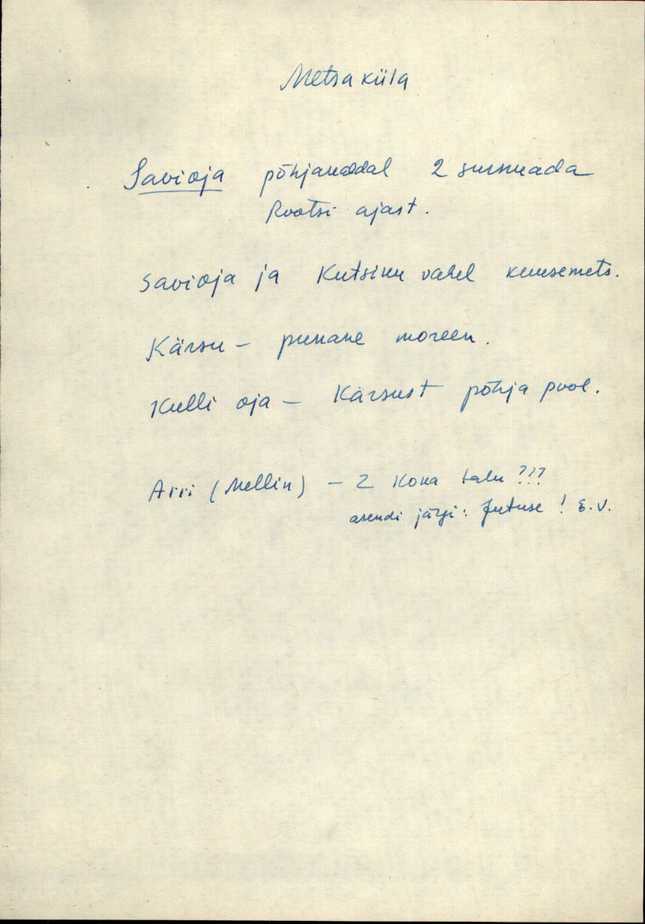 Metsaküla
Savioja põhjanõlval 2 surnuada
Rootsi ajast.
Savioja ja Kutsinu vahel kuusemets.
Kärsu – punane moreen.
Kulli oja – Kärsust põhja pool.
Arri (Mellin) – 2 Kona talu ???
asendi järgi: ! E.V.